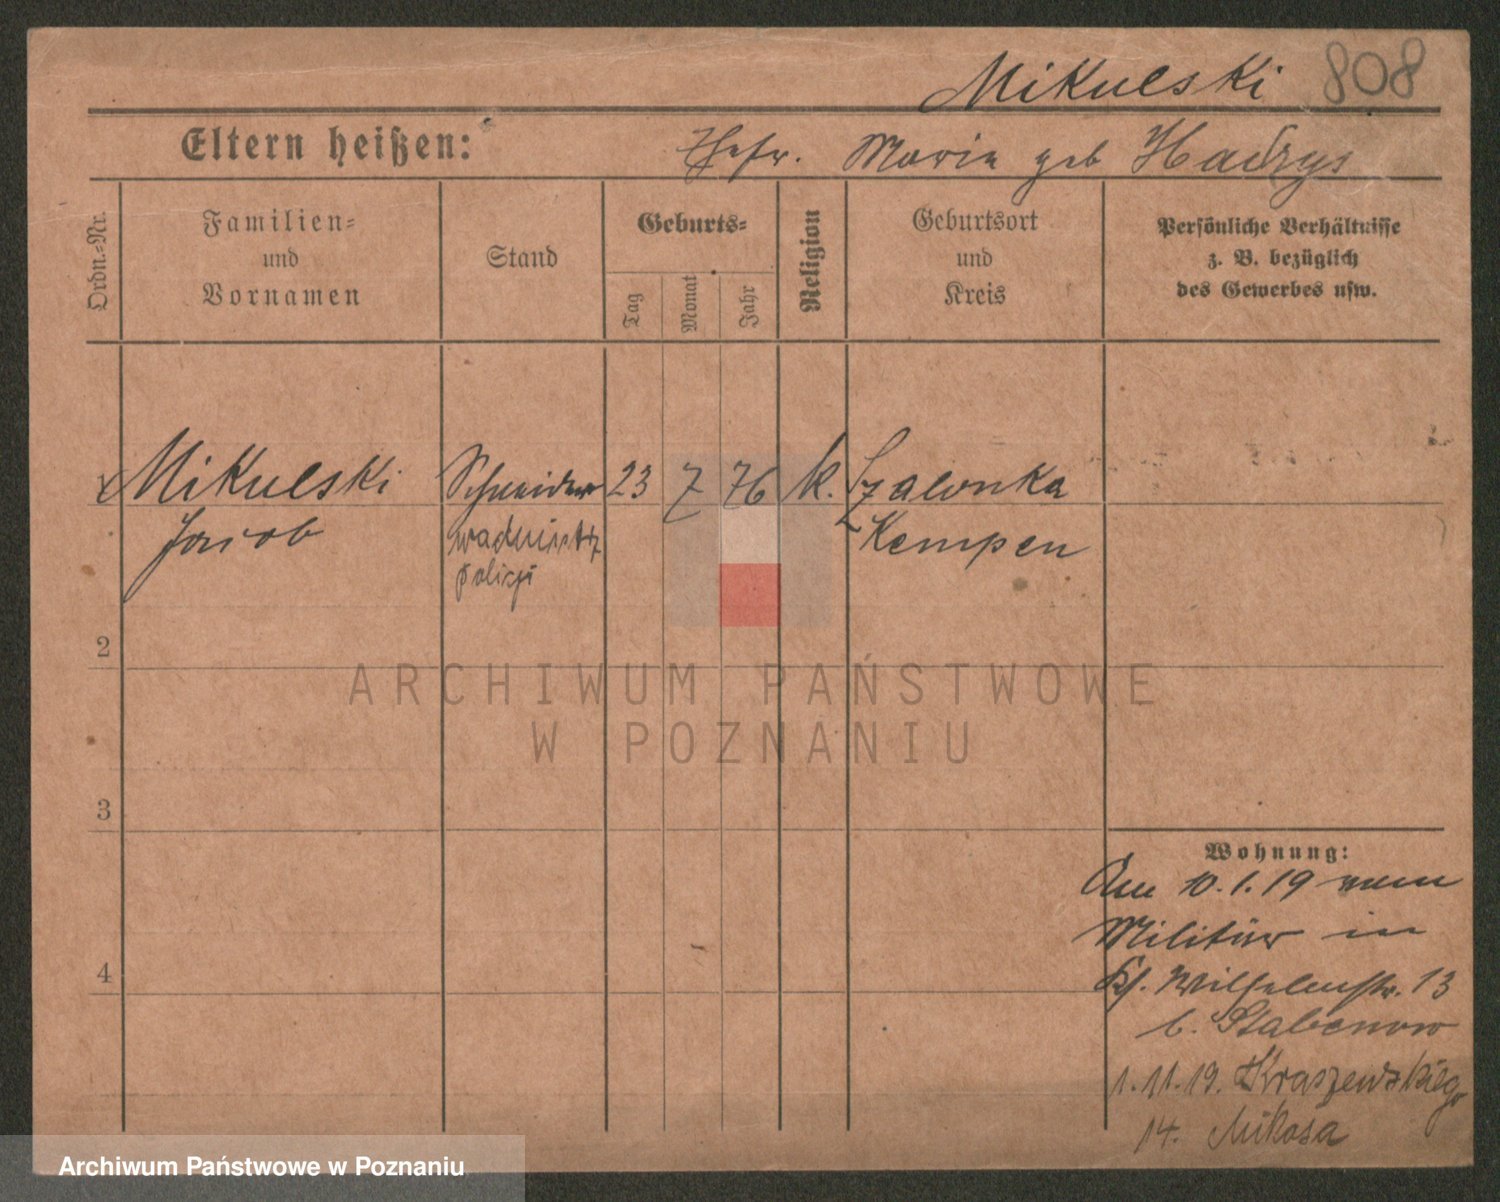 Mikulski 808
Eltern heißen: Ehefr. Marie geb Hadrys
Ordn.-Nr.
Familien-
und
Vornamen
Stand
Geburts-
Tag
Monat
Jahr
Religion
Geburtsort
und
Kreis
Persönliche Verhältnisse
z. B. bezüglich
des Gewerbes usw.
1 Mikulski Schneider 23 7 76 k. Szalonka
Jacob Kempen
policji
2
ARCHIWUM PAŃSTWOWE
W POZNANIU
3
Wohnung:
Am 10.1.19 vom
Militär in
Ks. Wilhelmstr. 13
b. Stabenow
4
1.11.19. Kraszewskiego
14. Mikosa
Archiwum Państwowe w Poznaniu